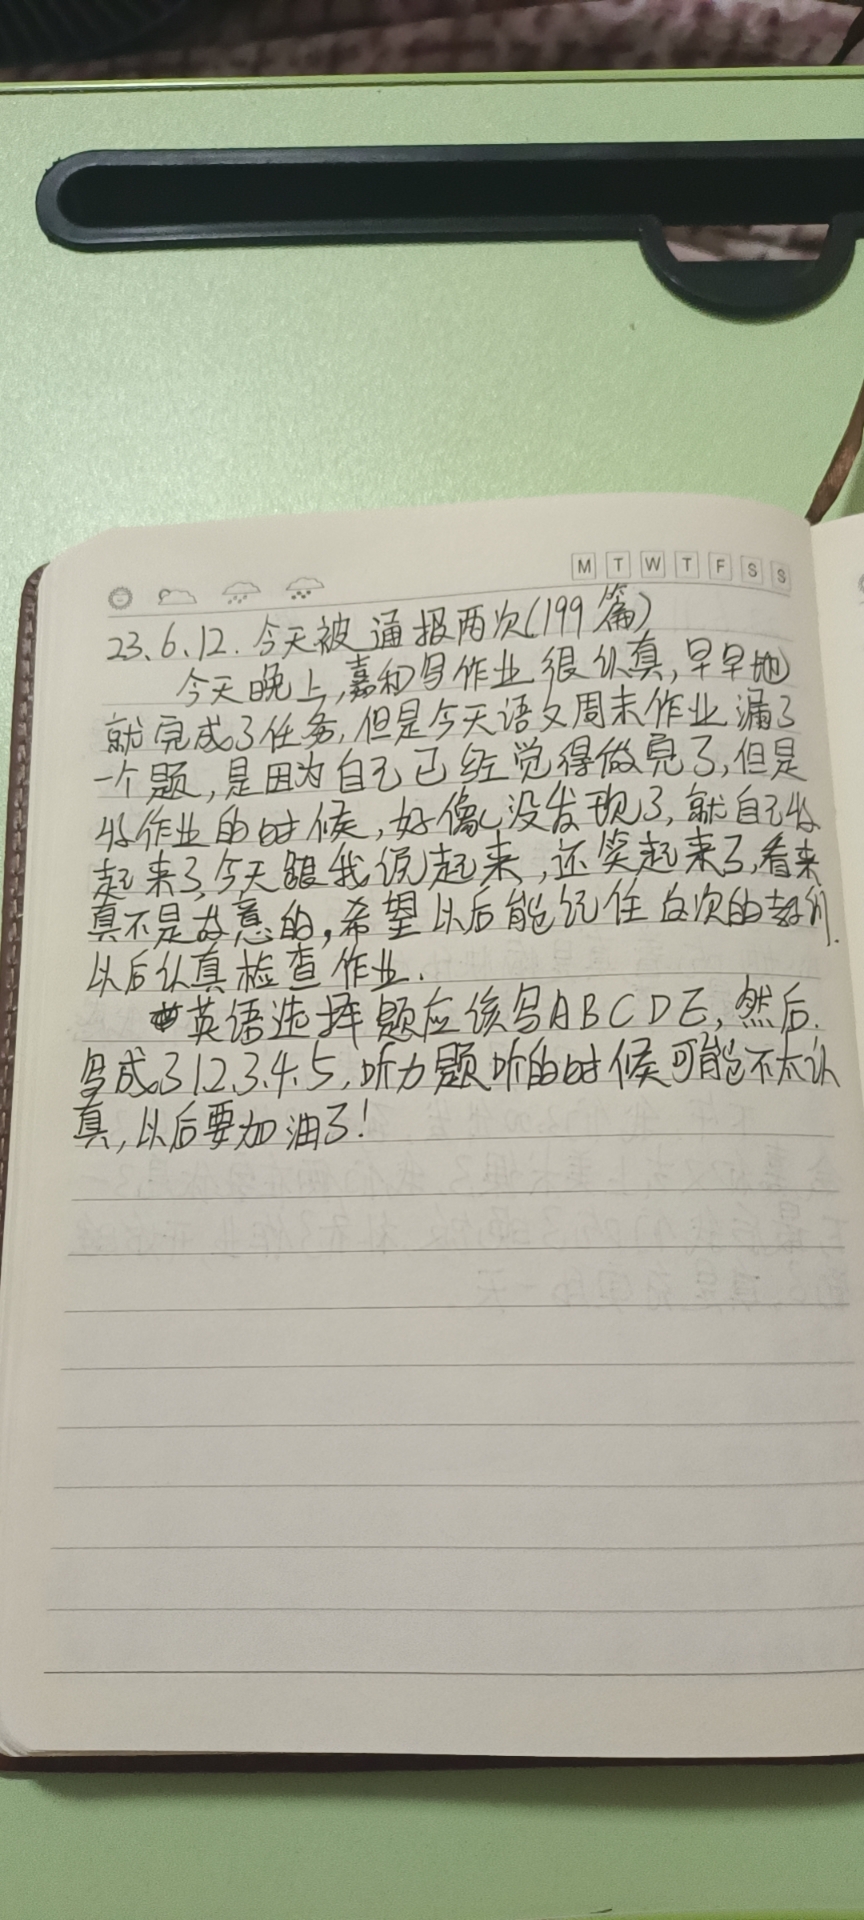 M T W T F S S
23.6.12.今天被通报两次(199篇)
今天晚上,嘉和写作业很认真,早早地
就完成了任务,但是今天语文周末作业漏了
一个题,是因为自己已经觉得做完了,但是
收作业的时候,好像没发现了,就自己收
起来了,今天跟我说起来,还笑起来了,看来
真不是故意的,希望以后能记住这次的教训.
以后认真检查作业.
英语选择题应该写ABCDE,然后.
写成了12.3.4.5,听力题听的时候可能不太认
真,以后要加油了!